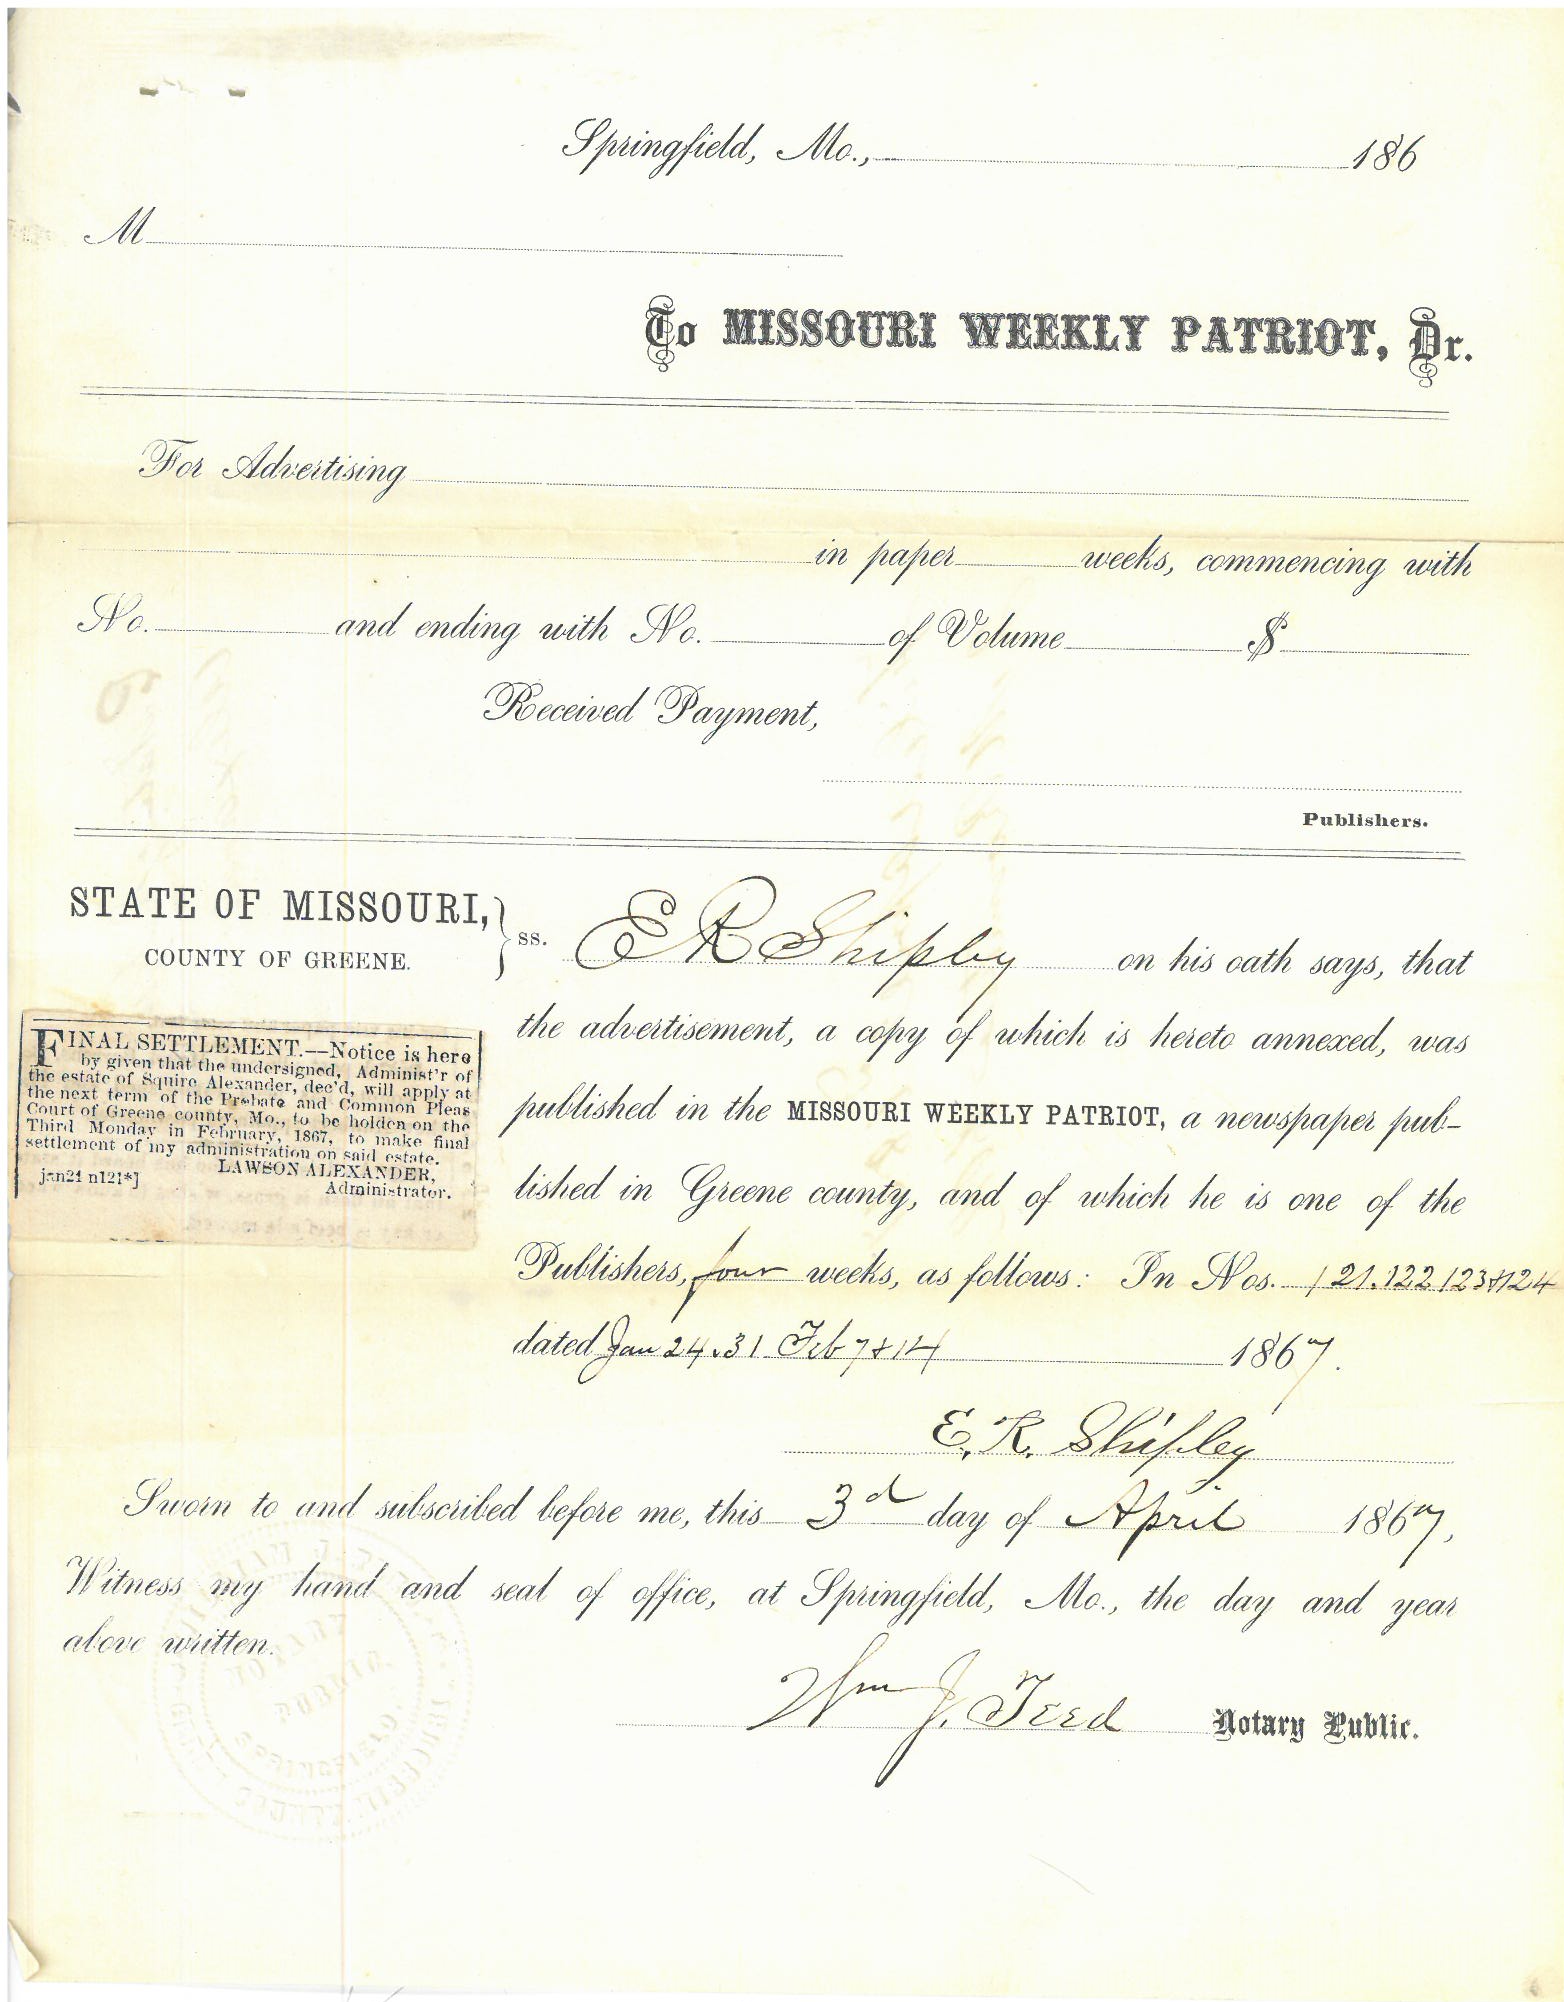 Springfield, Mo., 186
M
To MISSOURI WEEKLY PATRIOT, Dr.
For Advertising
in paper weeks, commencing with
No. and ending with No. of Volume $
Received Payment,
Publishers.
STATE OF MISSOURI,
COUNTY OF GREENE.
} ss. E R Shipley on his oath says, that
the advertisement, a copy of which is hereto annexed, was
published in the MISSOURI WEEKLY PATRIOT, a newspaper pub-
lished in Greene county, and of which he is one of the
Publishers, four weeks, as follows: In Nos. 121.122 123 & 124
dated Jan 24.31 Feb 7 & 14 1867.
E. R. Shipley
FINAL SETTLEMENT.—Notice is here
by given that the undersigned, Administ'r of
the estate of Squire Alexander, dec'd, will apply at
the next term of the Probate and Common Pleas
Court of Greene county, Mo., to be holden on the
Third Monday in February, 1867, to make final
settlement of my administration on said estate.
LAWSON ALEXANDER,
jan24 n121*] Administrator.
Sworn to and subscribed before me, this 3d day of April 1867,
Witness my hand and seal of office, at Springfield, Mo., the day and year
above written.
Wm J. Teed Notary Public.
NOTARY
PUBLIC.
SPRINGFIELD,
COUNTY, MISSOURI